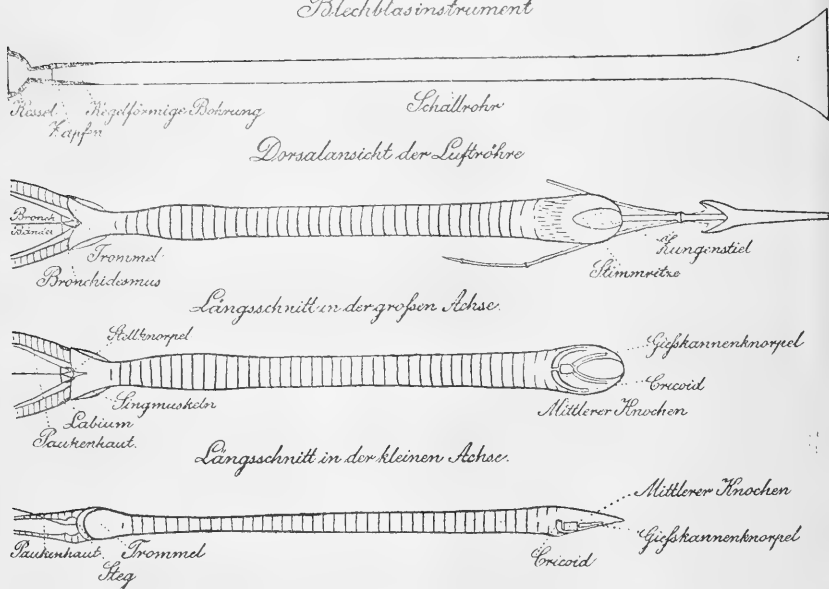 Blechblasinstrument
Kessel
Zapfen
Kegelförmige Bohrung
Schallrohr
Dorsalansicht der Luftröhre
Bronch
Bänder
Trommel
Bronchidesmus
Zungenstiel
Stimmritze
Längsschnitt in der großen Achse.
Stellknorpel
Singmuskeln
Labium
Paukenhaut.
Gießkannenknorpel
Cricoid
Mittlerer Knochen
Längsschnitt in der kleinen Achse.
Paukenhaut
Trommel
Steg
Mittlerer Knochen
Gießkannenknorpel
Cricoid